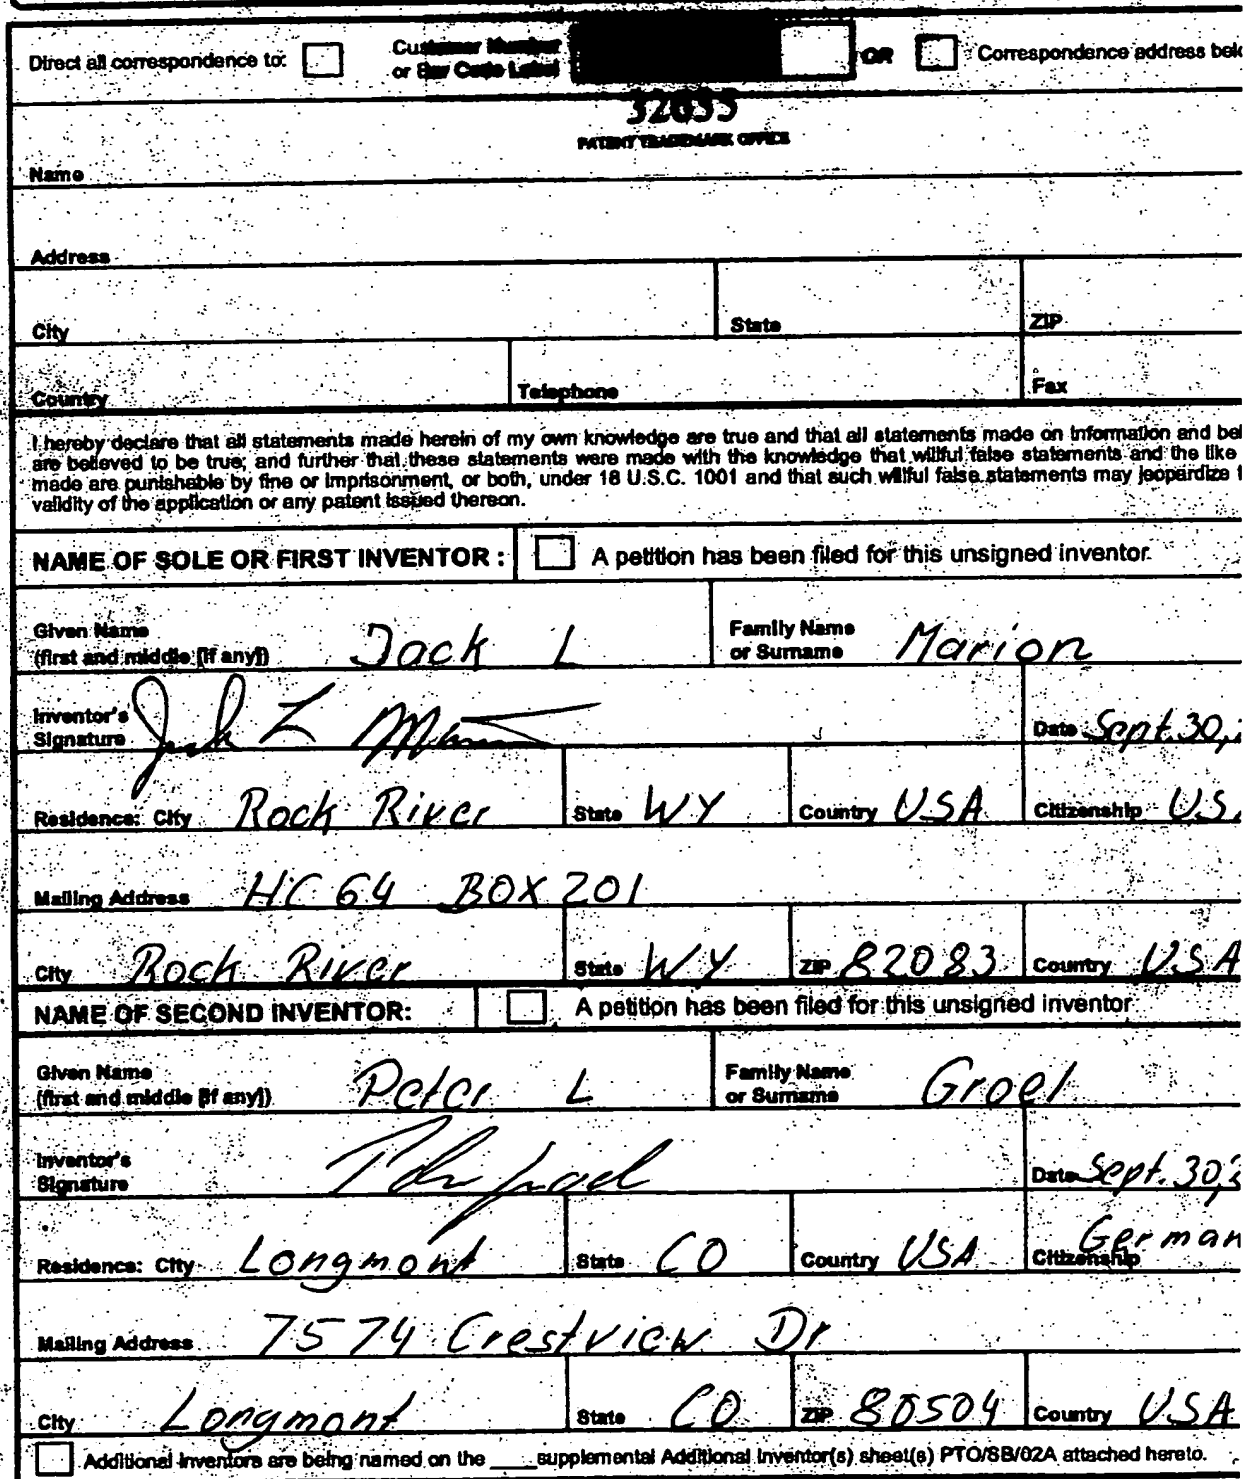 Direct all correspondence to: Customer Number or Bar Code Label OR Correspondence address
32655
PATENT TRADEMARK OFFICE
Name
Address
City State ZIP
Country Telephone Fax
I hereby declare that all statements made herein of my own knowledge are true and that all statements made on information and
are believed to be true; and further that these statements were made with the knowledge that willful false statements and the like
made are punishable by fine or imprisonment, or both, under 18 U.S.C. 1001 and that such willful false statements may jeopardize
validity of the application or any patent issued thereon.
NAME OF SOLE OR FIRST INVENTOR : A petition has been filed for this unsigned inventor.
Given Name (first and middle [if any]) Jack L Family Name or Surname Marion
Inventor's Signature Jack L Date Sept. 30,
Residence: City Rock River State WY Country USA Citizenship US
Mailing Address HC 64 BOX 201
City Rock River State WY ZIP 82083 Country USA
NAME OF SECOND INVENTOR: A petition has been filed for this unsigned inventor
Given Name (first and middle [if any]) Peter L Family Name or Surname Groel
Inventor's Signature Date Sept. 30,
Residence: City Longmont State CO Country USA Citizenship German
Mailing Address 7574 Crestview Dr
City Longmont State CO ZIP 80504 Country USA
Additional inventors are being named on the ____supplemental Additional Inventor(s) sheet(s) PTO/SB/02A attached hereto.